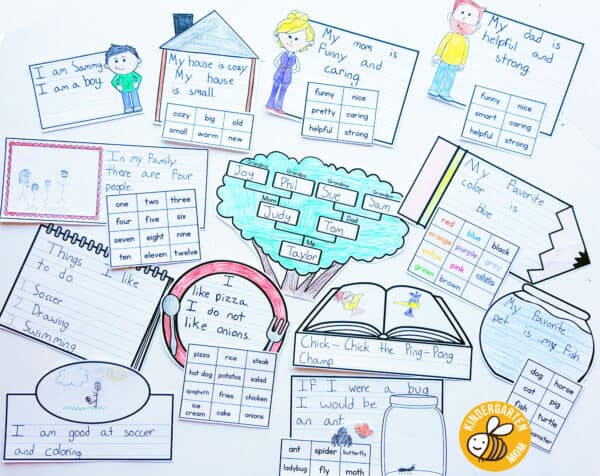 I am Sammy.
I am a boy.
My house is cozy.
My house
is small.
cozy big old
small warm new
My mom is
funny and
caring.
funny nice
pretty caring
helpful strong
My dad is
helpful and
strong.
funny nice
smart caring
helpful strong
In my family
there are four
people.
one two three
four five six
seven eight nine
ten eleven twelve
Grandma Grandpa Grandma Grandpa
Joy Phil Sue Sam
Mom Dad
Judy Tom
Me
Taylor
My favorite
color is
blue
red blue black
orange purple gray
yellow pink white
green brown
Things I like
to do.
1 Soccer
2 Drawing
3 Swimming
I
like pizza.
I do not
like onions.
pizza rice steak
hot dog potatoes salad
spaghetti fries chicken
ice cream cake onions
Chick-Chick the Ping-Pong
Champ
My favorite
pet is my fish
dog horse
cat pig
fish turtle
hamster
I am good at soccer
and coloring.
If I were a bug
I would be
an ant.
ant spider butterfly
ladybug fly moth
KINDERGARTEN
MOM